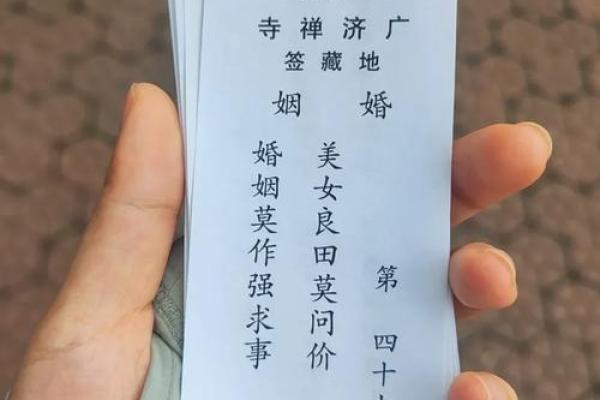 广济禅寺
地藏签
婚姻
第 四十
美女良田莫问价
婚姻莫作强求事